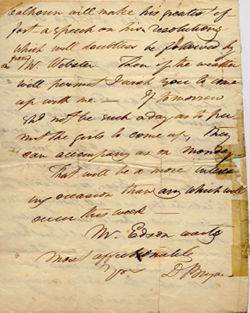 Calhoun will make his greatest ef-
fort a speech on his resolutions
which will doubtless be followed by
one from Mr. Webster. Then if the weather
will permit I wish you to come
up with me. — If tomorrow
shd not be such a day as to per-
mit the girls to come up, they
can accompany us on monday
That will be a more interest
ing occasion than any which will
occur this week
Mr. Edson waits
most affectionately
yrs